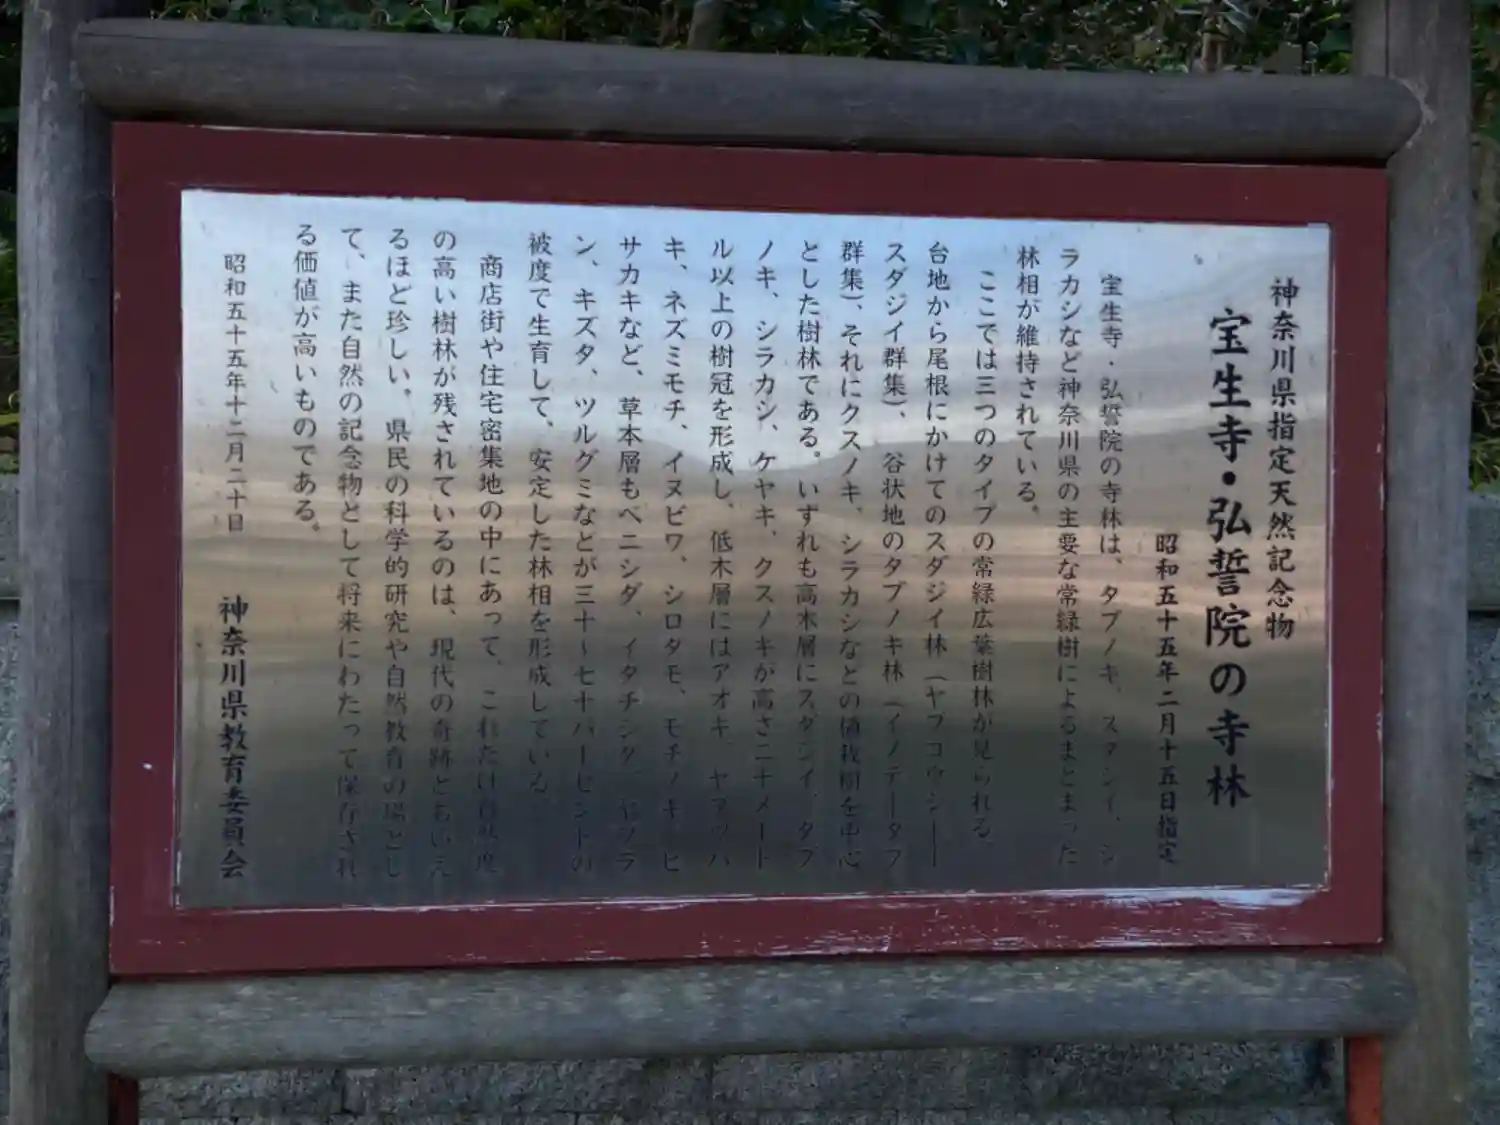 神奈川県指定天然記念物
宝生寺・弘誓院の寺林
昭和五十五年二月十五日指定
宝生寺・弘誓院の寺林は、タブノキ、スダジイ、シ
ラカシなど神奈川県の主要な常緑樹によるまとまった
林相が維持されている。
ここでは三つのタイプの常緑広葉樹林が見られる。
台地から尾根にかけてのスダジイ林(ヤブコウジ―
スダジイ群集)、谷状地のタブノキ林(イノデ―タブ
群集)、それにクスノキ、シラカシなどの植栽樹を中心
とした樹林である。いずれも高木層にスダジイ、タブ
ノキ、シラカシ、ケヤキ、クスノキが高さ二十メート
ル以上の樹冠を形成し、低木層にはアオキ、ヤブツバ
キ、ネズミモチ、イヌビワ、シロダモ、モチノキ、ヒ
サカキなど、草本層もベニシダ、イタチシダ、ヤブラ
ン、キズタ、ツルグミなどが三十~七十パーセントの
被度で生育して、安定した林相を形成している。
商店街や住宅密集地の中にあって、これだけ自然度
の高い樹林が残されているのは、現代の奇跡ともいえ
るほど珍しい。県民の科学的研究や自然教育の場とし
て、また自然の記念物として将来にわたって保存され
る価値が高いものである。
昭和五十五年十二月二十日
神奈川県教育委員会